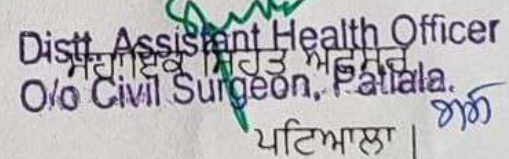 Distt. Assistant Health Officer
ਸਹਾਇਕ ਸਿਹਤ ਅਫਸਰ
O/o Civil Surgeon, Patiala.
ਪਟਿਆਲਾ |